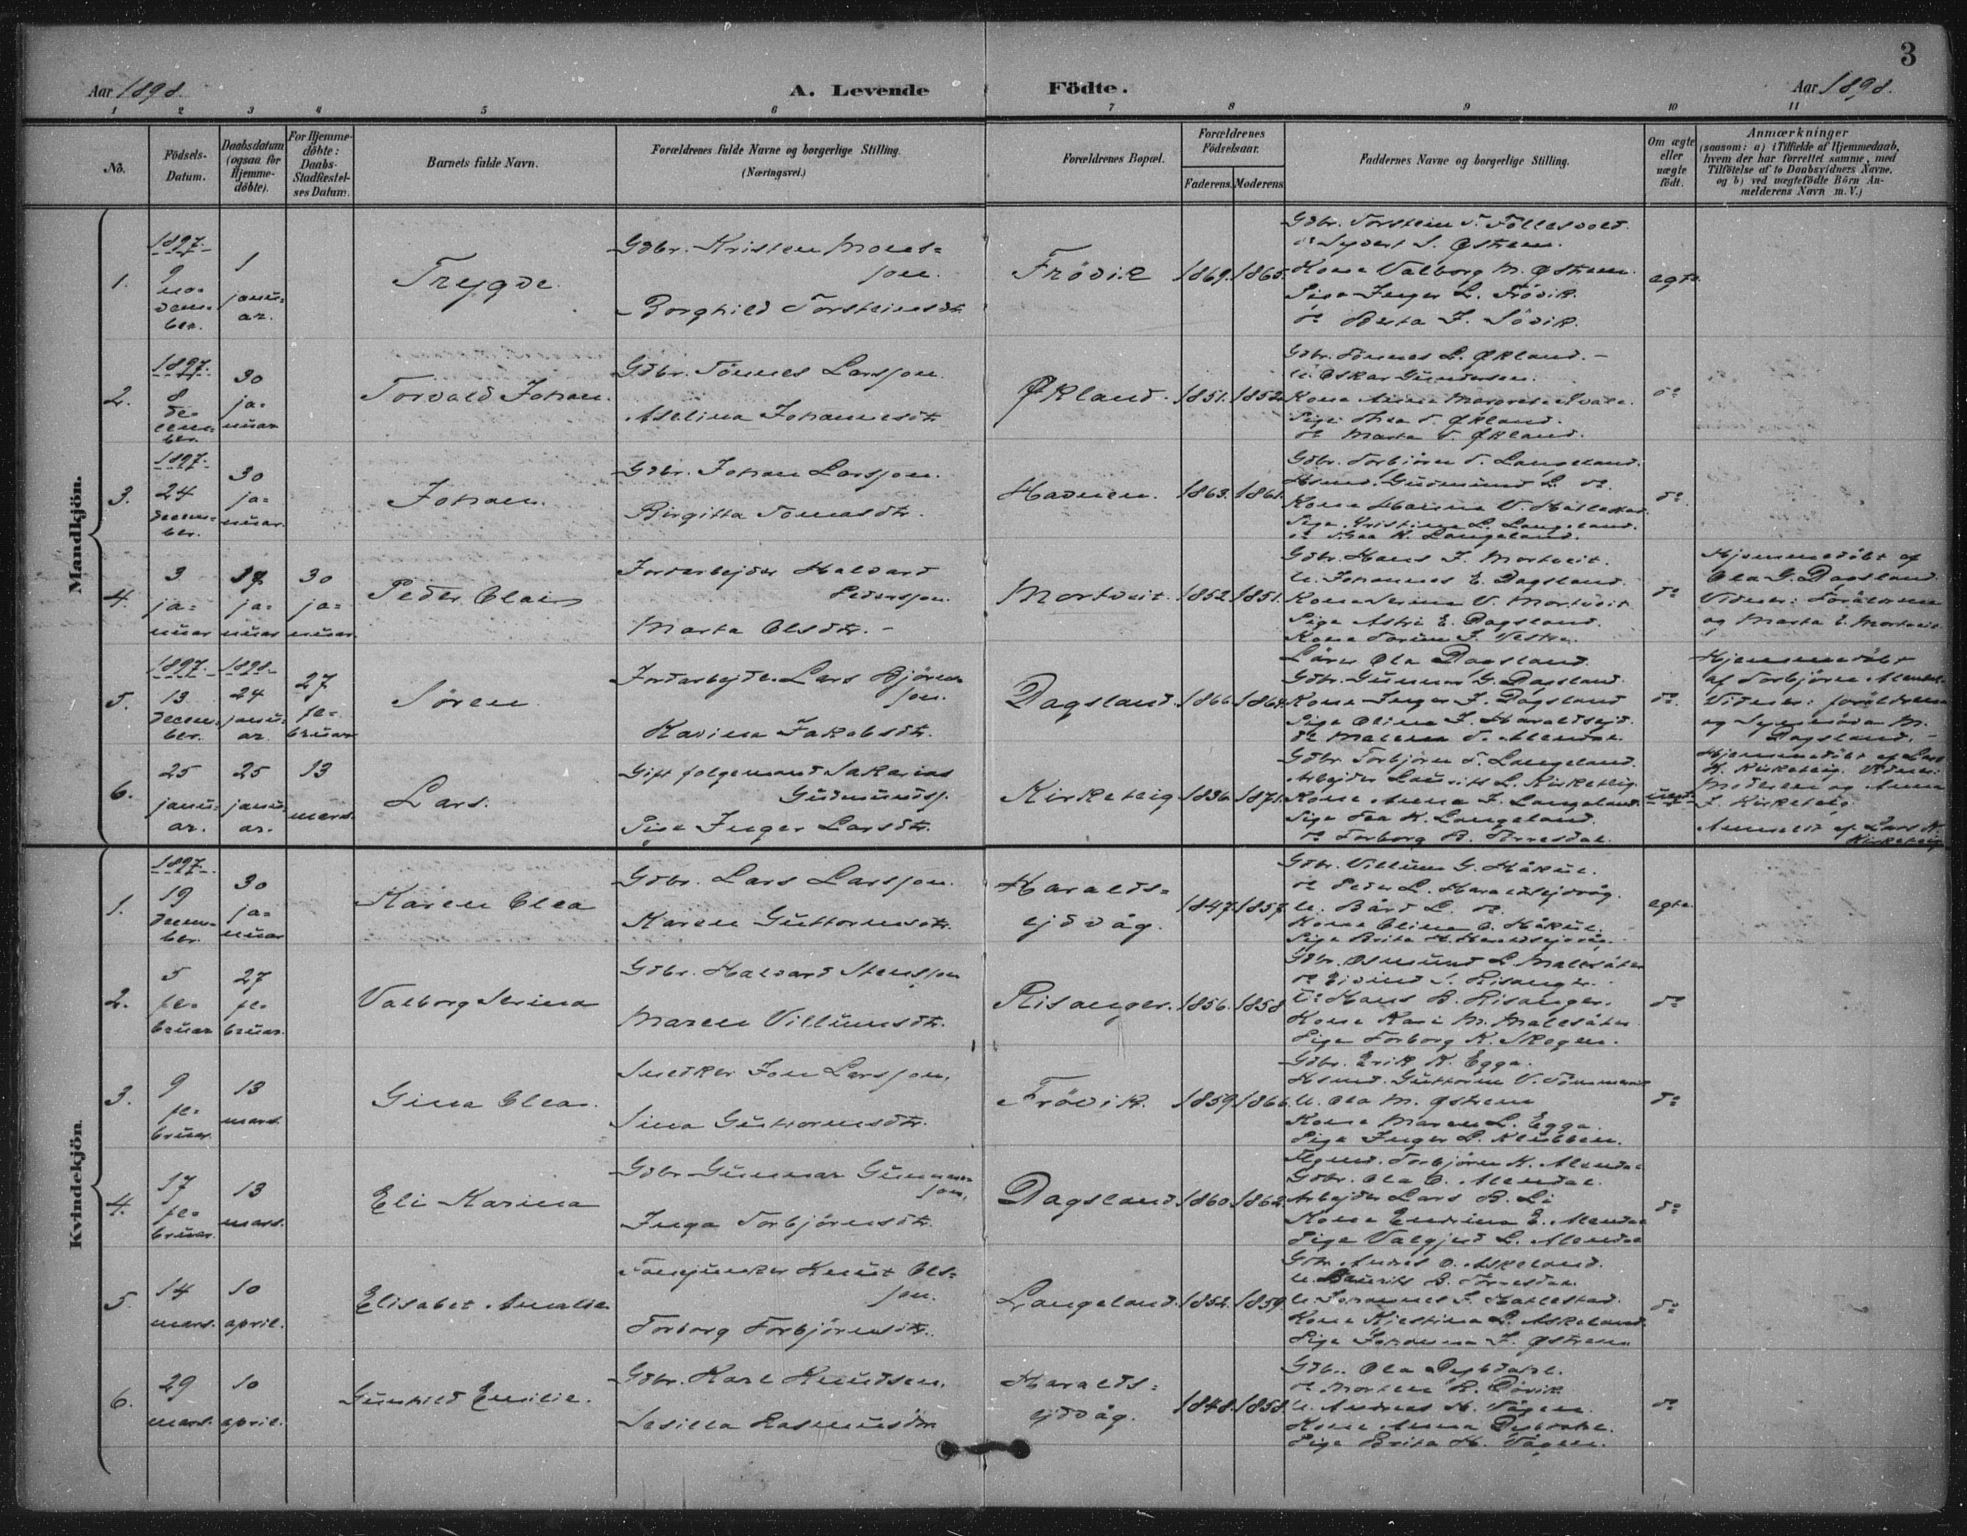 3
Aar 1898.
A. Levende Födte.
Aar 1898.
1 2 3 4 5 6 7 8 9 10 11
No.
Födsels-Datum.
Daabsdatum (ogsaa for Hjemme-döbte).
For Hjemme-döbte: Daabs-Stadfæstel-ses Datum.
Barnets fulde Navn.
Forældrenes fulde Navne og borgerlige Stilling.
(Næringsvei.)
Forældrenes Bopæl.
Forældrenes Födselsaar.
Faderens. Moderens.
Faddernes Navne og borgerlige Stilling.
Om ægte eller uægte födt.
Anmærkninger
(saasom: a) i Tilfælde af Hjemmedaab,
hvem der har forrettet samme, med
Tilföielse af to Daabsvidners Navne,
og b) ved uægtefödte Börn An-
melderens Navn m. V.)
Mandkjön.
1.
1897.
9
no-
vem-
ber.
1
janu-
ar.
Trygve
Gdbr. Kristen Mons-
son.
Borghild Torsteinsdtr.
Frövik
1869. 1865.
Gdbr. Torstein T. Föllesvold.
do Sjovert S. Østrem.
Kone Valborg M. Østrem.
Pige Inger L. Frövik.
do Berta J. Sövik.
egte.
2.
1897.
8
de-
cem-
ber.
30
ja-
nuar
Torvald Johan.
Gdbr. Tönnes Larsson.
Aselina Johannesdtr.
Økland.
1851. 1852.
Gdbr. Tönnes L. Økland.
U. Oskar Gundersen.
Kone Anna Margreta
Pige Thea T. Økland.
do Marta T. Økland.
do
3.
1897.
24
decem-
ber.
30
ja-
nuar.
Johan.
Gdbr. Johan Larsson.
Birgitta Tomasdtr.
Havnen.
1863. 1861.
Gdbr. Torbjörn T. Langeland.
Hsmd. Gudmund L. do.
Kone Marina V. Hatlestad.
Pige Kristina L. Langeland.
do Thea K. Langeland.
do
4.
3
ja-
nuar
ja-
nuar
30
ja-
nuar.
Peder Olai
Jordarbejder Halvard
Pedersson.
Marta Olsdtr.
Mortveit.
1852. 1851.
Gdbr. Hans J. Mortveit.
U. Johannes E. Dagsland.
Kone Serina V. Mortveit
Pige Astri E. Dagsland.
Kone Torine J.
do
Hjemmedöbt af
Ola G. Dagsland.
Vidner: Forældrene
og Marta E. Mortveit.
5.
1897.
13
decem-
ber.
1898.
24
janu-
ar.
27
fe-
bruar
Sören
Jordarbejder Lars Björns-
son.
Karina Jakobsdtr.
Dagsland.
1866. 1864.
Lærer Ola Dagsland.
Gdbr. Gunnar G. Dagsland.
Kone Inger J. Dagsland
Pige Olina J. Haraldsejd.
do Malena T. Alendal.
do
Hjemmedöbt
af Torbjörn Alendal.
Vidner: forældrene
og Synneva M.
Dagsland.
6.
25
janu-
ar.
25
janu-
ar.
13
mars.
Lars.
Gift folgemand Sakarias
Gudmunds.
Pige Inger Larsdtr.
Kirketeig
1836. 1871.
Gdbr. Torbjörn T. Langeland.
Arbejder Laurits L. Kirketeig.
Kone Anna J. Langeland.
Pige Thea K. Langeland.
do Torborg B. Torresdal.
uegt.
Hjemmedöbt af Lars
K. Kirketeig. Vidner:
Moderen og Anna
J. Kirketeig.
Anmeldt af Lars K.
Kirketeig
Kvindekjön.
1.
1897.
19
decem-
ber.
30
ja-
nuar
Karen Olea
Gdbr. Lars Larsson.
Karen Guttormsdtr.
Haralds-
ejdvåg.
1847. 1857.
Gdbr. Villum G. Håkul.
do Peder L. Haraldsejdvåg.
U. Bård L. do.
Kone Olina O. Håkul.
Pige Brita H. Haraldsejdvåg.
egte.
2.
5
fe-
bruar
27
fe-
bruar.
Valborg Serina
Gdbr. Halvard Stensson
Maren Villumsdtr.
Risanger.
1856. 1858
Gdbr. Osmund L. Malesäter
do Eivind S. Risanger.
U. Hans B. Risanger.
Kone Kari M. Malesäter.
Pige Torborg K. Skogen.
do
3.
9
fe-
bruar.
13
mars.
Gina Olea.
Snedker Jon Larsson.
Sina Guttormsdtr.
Frövik.
1859. 1866.
Gdbr. Erik K. Egge.
Hsmd. Guttorm V.
U. Ola M. Østrem
Kone Maren L. Egge.
Pige Inger L. Klubben.
do
4.
17
fe-
bruar.
13
mars.
Eli Karina
Gdbr. Gunnar Gunnars-
son.
Inga Torbjörnsdtr.
Dagsland.
1860. 1862.
Ugmd. Torbjörn K. Alendal
Gdbr. Ola O. Alendal.
Arbejder Lars B. Li
Kone Endrina E. Alendal
Pige Valgjerd L. Alendal
do
5.
14
mars.
10
april.
Elisabet Amalia.
Knut Ols-
son.
Torborg Torbjörnsdtr.
Langeland.
1852. 1859.
Gdbr. Anders O. Askeland.
U. Laurits B. Torresdal.
U. Johannes S. Hatlestad.
Kone Kjestina L. Askeland.
Pige Johanna J. Østrem
do
6.
29
mars.
10
april.
Gunhild Emilie.
Gdbr. Karl Knudsen.
Sesilla Rasmusdtr.
Haralds-
ejdvåg.
1848. 1858.
Gdbr. Ola Dybdahl.
do Morten R. Dövik
U. Andreas H. Vågen.
Kone Anna Dybdahl.
Pige Brita H. Vågen.
do